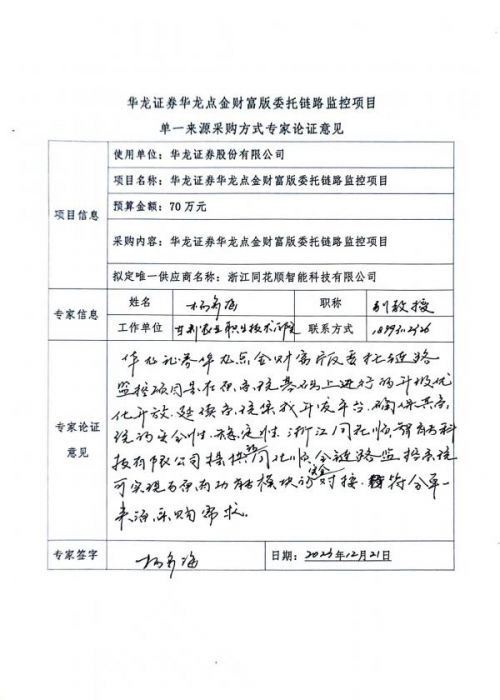 华龙证券华龙点金财富版委托链路监控项目
单一来源采购方式专家论证意见
项目信息
使用单位：华龙证券股份有限公司
项目名称：华龙证券华龙点金财富版委托链路监控项目
预算金额：70万元
采购内容：华龙证券华龙点金财富版委托链路监控项目
拟定唯一供应商名称：浙江同花顺智能科技有限公司
专家信息
姓名 职称 副教授
工作单位 甘肃农业职业技术学院 联系方式
专家论证意见
华龙证券华龙点金财富版委托链路
监控项目是在原系统基础上进行的升级优
化开发，延续系统原有开发平台，确保其系
统的安全性、稳定性。浙江同花顺智能科
技有限公司提供的同花顺全链路监控系统
可实现与原有功能模块的安全对接，符合单一
来源采购需求。
专家签字
日期：2023年12月21日